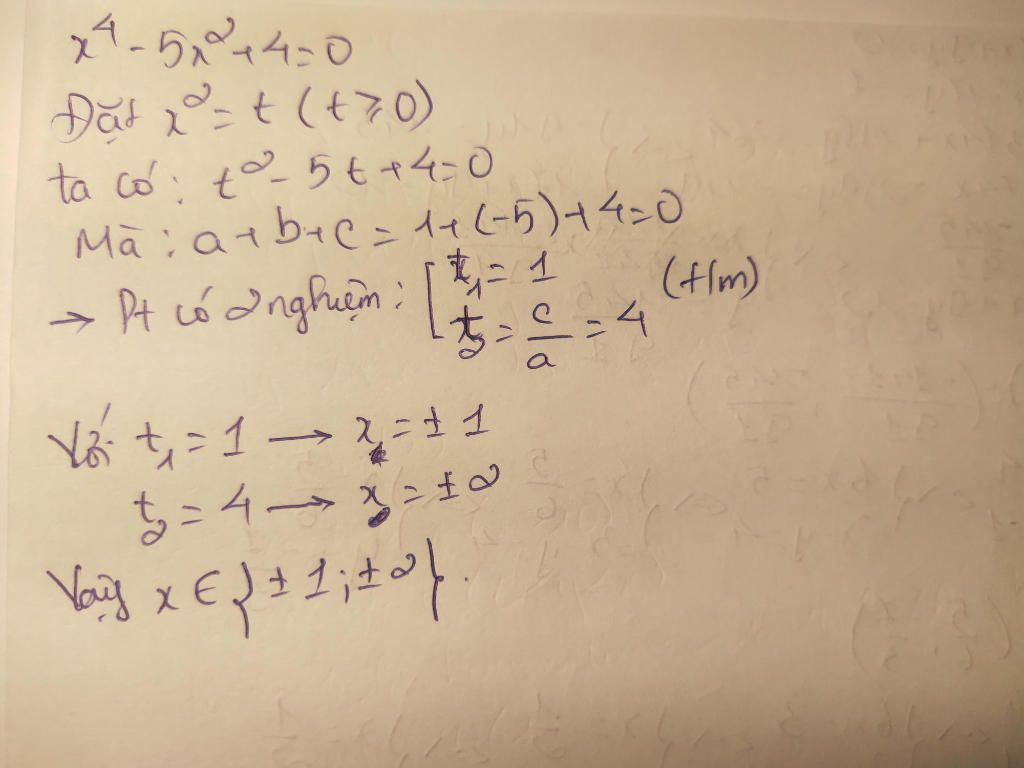 x⁴ - 5x² + 4 = 0
Đặt x² = t (t ⩾ 0)
ta có: t² - 5t + 4 = 0
Mà: a + b + c = 1 + (-5) + 4 = 0
→ Pt có 2 nghiệm: [ t₁ = 1 (t/m)
t₂ = c/a = 4
Với t₁ = 1 → x = ± 1
t₂ = 4 → x = ± 2
Vậy x ∈ {± 1; ± 2}.